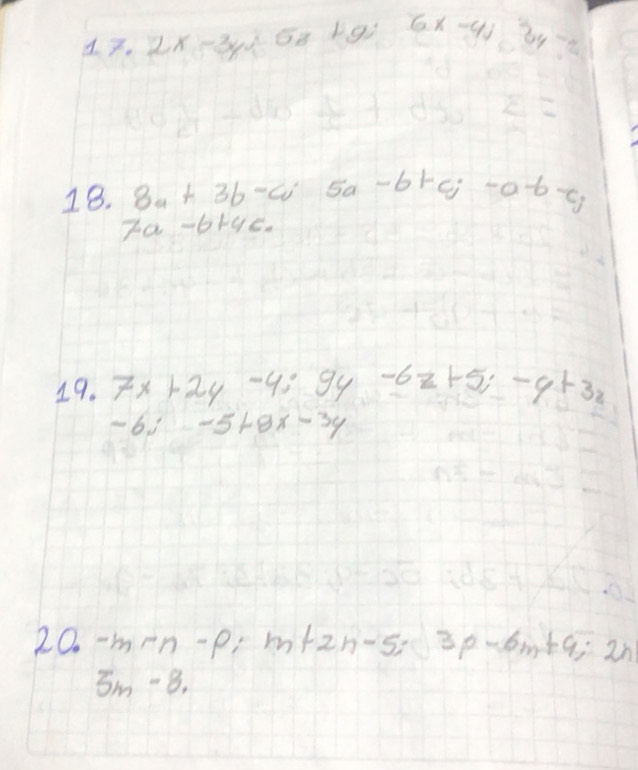 17. 2x -3y; 5z +9; 6x -4; 3y -z
18. 8a + 3b -c; 5a -b+c; -a-b-c;
7a -b+4c.
19. 7x +2y -4; 9y -6z+5; -y+3z
-6; -5+8x-3y
20. -m-n -p; m+2n-5; 3p-6m+4; 2n
5m -8.